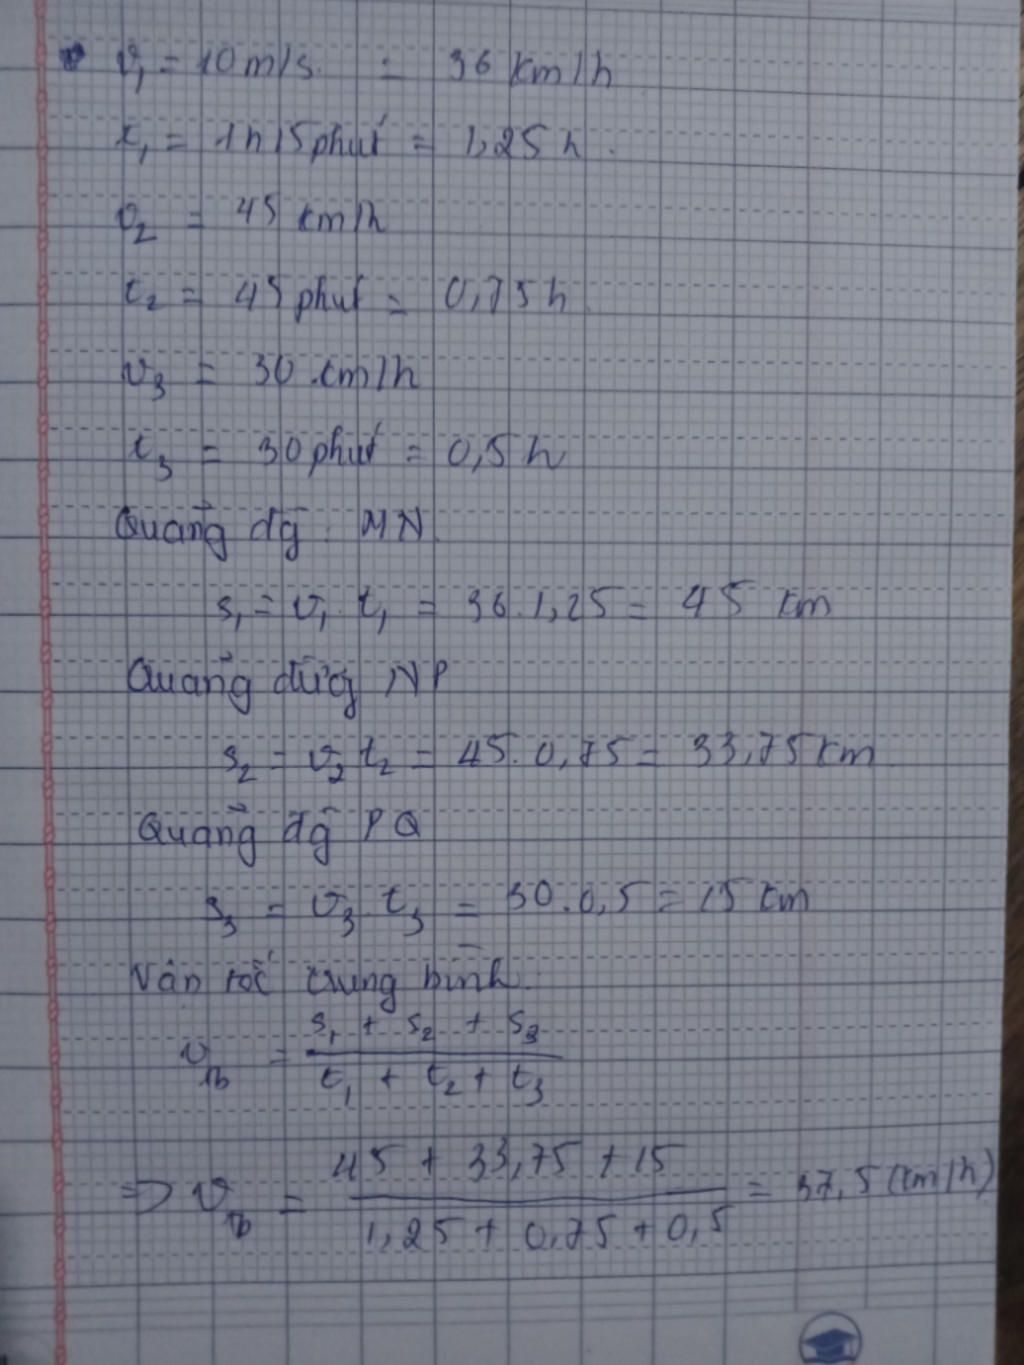 v₁ = 10 m/s = 36 km/h
t₁ = 1h15 phút = 1,25 h.
v₂ = 45 km/h
t₂ = 45 phút = 0,75 h.
v₃ = 30 km/h
t₃ = 30 phút = 0,5 h
Quảng đg MN.
s₁ = v₁ . t₁ = 36 . 1,25 = 45 km
Quảng đường NP
s₂ = v₂ t₂ = 45 . 0,75 = 33,75 km
Quảng đg PQ
s₃ = v₃ . t₃ = 30 . 0,5 = 15 km
Vân tốc trung bình.
s₁ + s₂ + s₃
v_tb =
t₁ + t₂ + t₃
45 + 33,75 + 15
=> v_tb = = 37,5 (km/h)
1,25 + 0,75 + 0,5